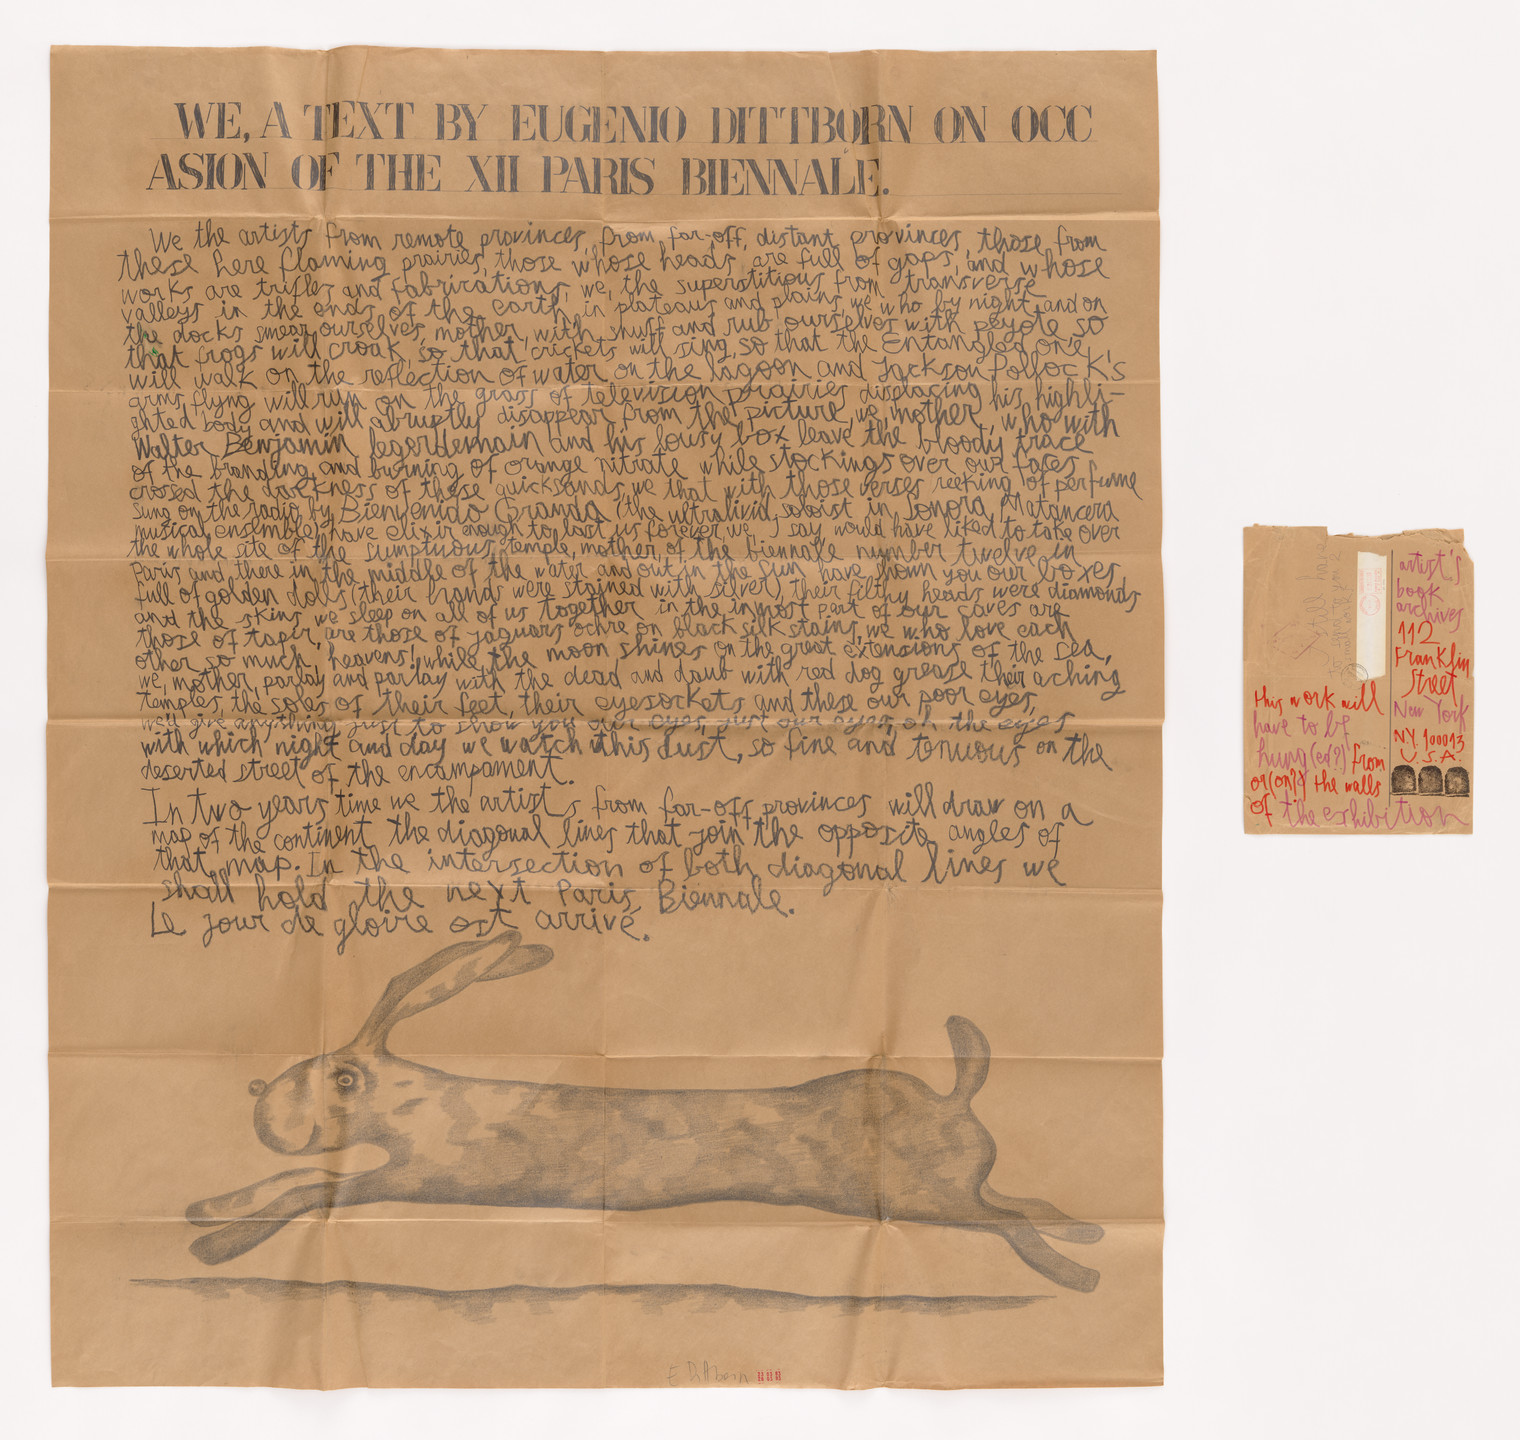 WE, A TEXT BY EUGENIO DITTBORN ON OCC
ASION OF THE XII PARIS BIENNALE.
We the artists from remote provinces, from far-off, distant provinces, those from
these here flaming prairies, those whose heads are full of gaps, and whose
works are trifles and fabrications, we, the superstitious from transverse
valleys in the ends of the earth, in plateaus and plains, we who by night and on
the docks smear ourselves, mother, with snuff and rub ourselves with peyote so
that frogs will croak, so that crickets will sing, so that the Entangled one
will walk on the reflection of water on the lagoon and Jackson Pollock's
arms flyng will run on the grass of television prairies displacing his highli-
ghted body and will abruptly disappear from the picture, we, mother, who with
Walter Benjamin legerdemain and his lousy box leave the bloody trace
of the branding and burning of orange nitrate while stockings over our faces
crossed the darkness of these quicksands, we that with those verses reeking of perfume
sung on the radio by Bienvenido Granda (the ultralivid soloist in Sonora Matancera
musical ensemble) have elixir enough to last us forever, we, I say, would have liked to take over
the whole site of the sumptuous temple, mother, of the biennale number twelve in
Paris and there in the middle of the water and out in the sun have shown you our boxes
full of golden dolls (their hands were stained with silver), their filthy heads were diamonds
and the skins we sleep on all of us together in the inmost part of our caves are
those of tapir, are those of jaguars ochre on black silk stains, we who love each
other so much, heavens!, while the moon shines on the great extensions of the sea,
we, mother, parlay and parlay with the dead and daub with red dog grease their aching
temples, the soles of their feet, their eyesockets and these our poor eyes,
we'll give anything just to show you our eyes, just our eyes, oh the eyes
with which night and day we watch this dust, so fine and tenuous on the
deserted street of the encampament.
In two years time we the artists from far-off provinces will draw on a
map of the continent the diagonal lines that join the opposite angles of
that map. In the intersection of both diagonal lines we
shall hold the next Paris Biennale.
Le jour de gloire est arrivé.
E Dittborn
I still have
to send you 2
artist's
book
archives
112
Franklin
Street,
New York
NY. 10013
U.S.A.
this work will
have to be
hung(ed?) from
or(on?) the walls
of the exhibition